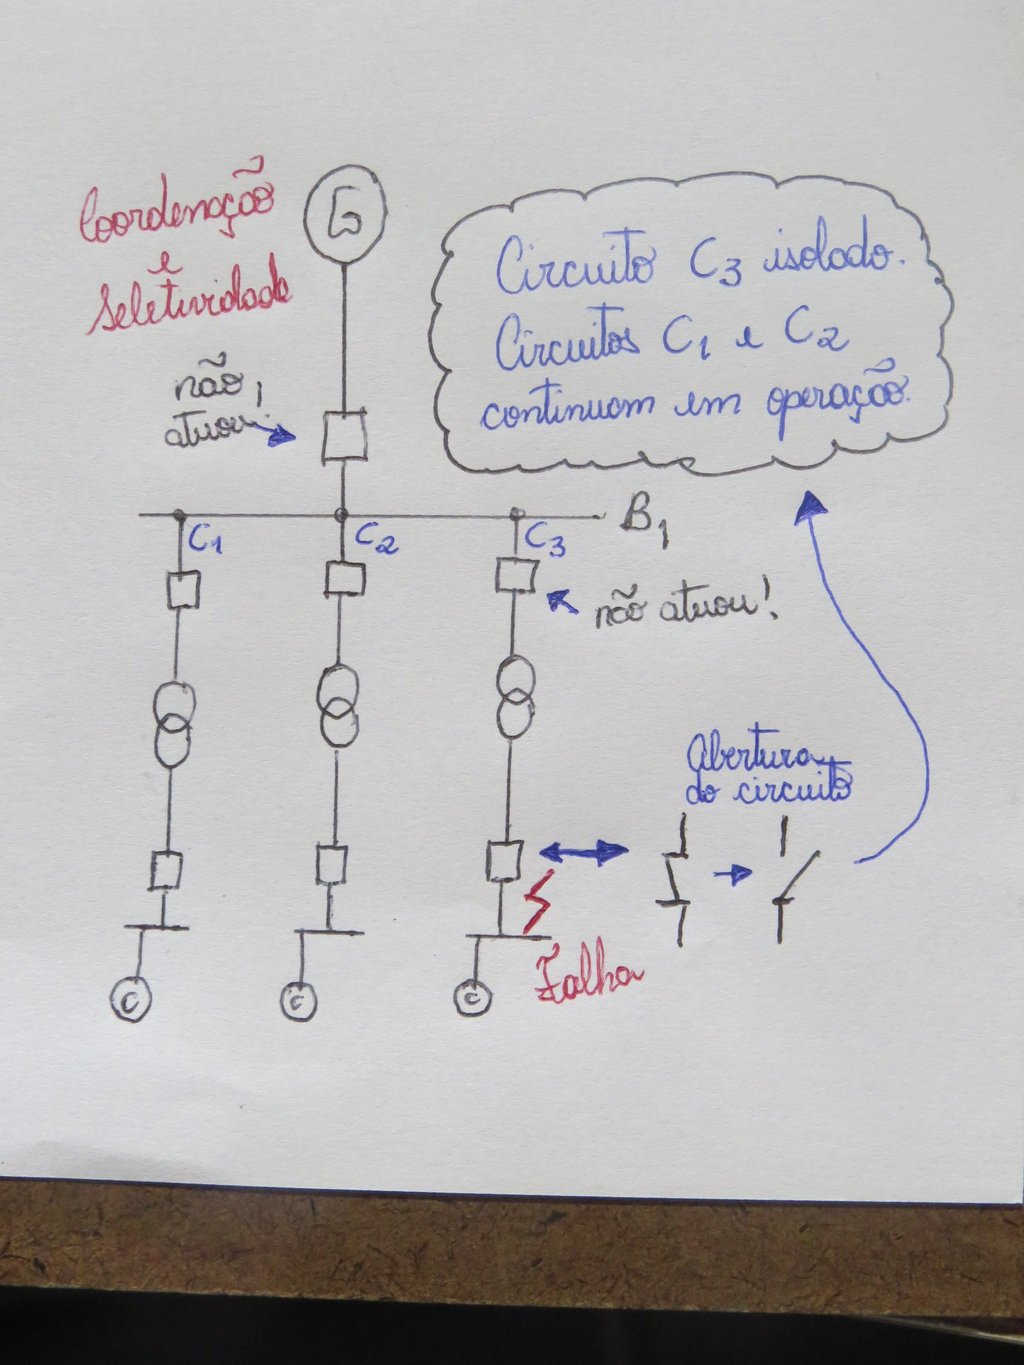 Coordenação
e
Seletividade
G
Circuito C3 isolado.
Circuitos C1 e C2
continuam em operação.
não
atuou!
B1
C1
C2
C3
não atuou!
Abertura
do circuito
Falha
C
C
C